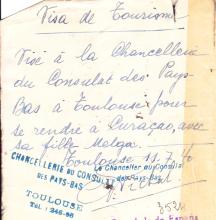 Visa de Tourisme
Visé à la Chancellerie
du Consulat des Pays-
Bas à Toulouse pour
se rendre à Curaçao, avec
sa fille Helga.
Toulouse 11.7.40
CHANCELLERIE DU CONSULAT
DES PAYS-BAS
TOULOUSE
Le Chancelier du Consulat
des Pays-Bas.